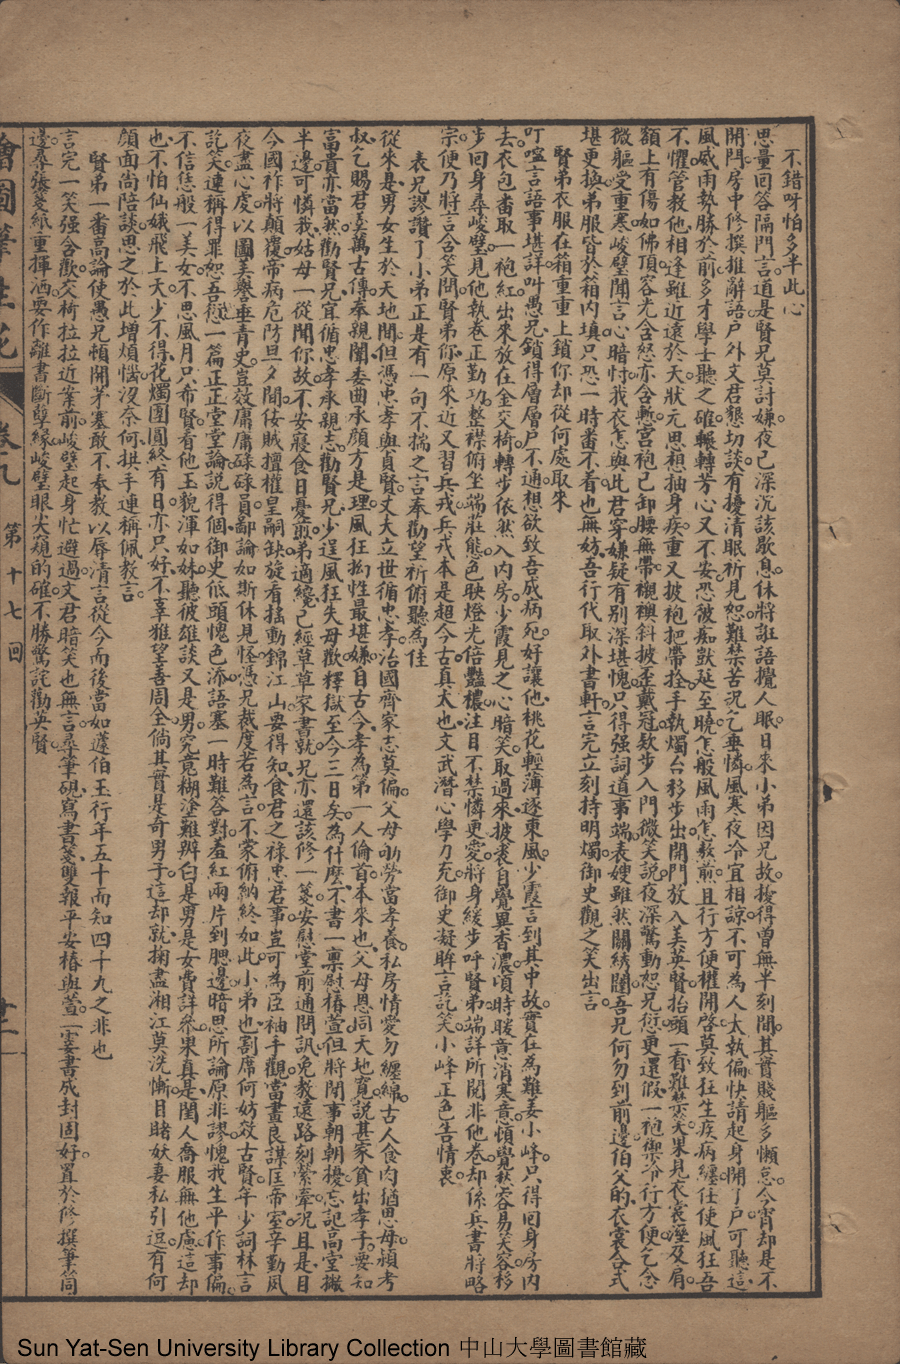 不錯呀怕多半此心
思量回答隔門言道是賢兄莫討嫌夜已深沉該歇息休將誑語攪人眠日來小弟因兄故擾得曾無半刻間其實賤軀多懶怠今宵却是不
開門房中修撰推辭語戶外文君懇切談有擾清眠祈見恕難禁苦况乞垂憐風寒夜冷宜相諒不可為人太執偏快請起身開了戶可聽這
風威雨勢勝於前多才學士聽之確輾轉芳心又不安恐彼痴獃延至曉怎般風雨怎熬煎且行方便權開啓莫致狂生疾病纏任使風狂吾
不懼管教他相逢雖近遠於天狀元思想抽身疾重又披袍把帶拴手執燭台移步出開門放入美英賢抬頭一看難禁笑果見衣裳溼及肩
額上有傷如佛頂容光含怒亦含慚宮袍已卸腰無帶襯襖斜披歪戴冠欵步入門微笑說夜深驚動恕兄愆更還假一袍禦冷行方便乞念
微軀受重寒峻壁聞言心暗忖我衣怎與此君穿嫌疑有别深堪愧只得強詞道事端表嫂雖然關綉闥吾兄何勿到前邊伯父的衣裳合式
堪更換弟服皆於箱内填只恐一時畨不着也無妨吾行代取外書軒言完立刻持明燭御史觀之笑出言
賢弟衣服在箱重重上鎖你却從何處取來
叮嚀言語事堪詳叫愚兄鎖得層層戶不通想欲致吾成病死好讓他桃花輕薄逐東風少霞言到其中故實在為難姜小峰只得回身房内
去衣包畨取一袍紅出來放在金交椅轉步依然入内房少霞見之心暗笑取過來披裘自覺異香濃頃時暖意消寒意頓覺秋容易笑容移
步回身尋峻壁見他執卷正勤功整襟俯坐端莊態色映燈光倍豔穠注目不禁憐更愛將身緩步呼賢弟端詳所閱非他卷却係兵書將略
宗便乃將言含笑問賢弟你原來近又習兵戎兵戎本是超今古真大也文武潛心學力充御史凝眸言訖笑小峰正色告情衷
表兄謬讚了小弟正是有一句不揣之言奉勸望祈俯聽為佳
從來是男女生於天地間但憑忠孝與貞賢丈夫立世循忠孝治國齊家志莫偏父母劬勞當孝養私房情愛勿纏綿古人食肉猶思母頴考
叔乞賜君羹萬古傳奉親闈委曲承顔方是理風狂拗性最堪嫌自古今孝為第一人倫首本來也父母恩同天地寬說甚家貧出孝子要知
富貴亦當然勸賢兄宜循忠孝承親志勸賢兄少逞風狂失母歡釋獄至今三日矣為什麽不書一稟慰椿萱但將閒事朝朝擾忘記高堂搬
半邊可憐我姑母一從聞你故不安寢食日憂煎弟適纔已經草草家書就兄亦還該修一箋安慰堂前通問訊免教遠路刻縈牽况且是目
今國祚將顛覆帝病危防旦夕間侫賊擅權皇嗣缺旋看搖動錦江山要得知食君之祿忠君事豈可為臣袖手觀當畫良謀匡帝室辛勤夙
夜盡心虔以圖美譽垂青史豈效庸庸碌碌員鄙論如斯休見怪憑兄裁度若為言不蒙俯納終如此小弟也割席何妨效古賢年少詞林言
訖笑連稱得罪恕吾愆一篇正正堂堂論說得個御史低頭愧色添語塞一時難答對羞紅兩片到腮邊暗思所論原非謬愧我生平作事偏
不信恁般一美女不思風月只希賢看他玉貌渾如妹聽彼雄談又是男究竟糊塗難辨白是男是女費詳參果真是閨人喬服無他慮這却
也不怕仙娥飛上天少不得花燭團圓終有日亦只好不辜雅望善周全倘其實是奇男子這却就掬盡湘江莫洗慚目睹妖妻私引逗有何
顔面尚陪談思之於此增煩惱沒奈何拱手連稱佩教言
賢弟一番高論使愚兄頓開茅塞敢不奉教以辱清言從今而後當如蘧伯玉行年五十而知四十九之非也
言完一笑強含歡交椅拉拉近案前峻壁起身忙避過文君暗笑也無言尋筆硯寫書箋雙報平安椿與萱一霎書成封固好置於修撰筆筒
邊尋張箋紙重揮洒要作離書斷孽緣峻壁眼尖窺的確不勝驚詫勸英賢
繪圖筆生花 卷九 第十七回 十一
Sun Yat-Sen University Library Collection 中山大學圖書館藏